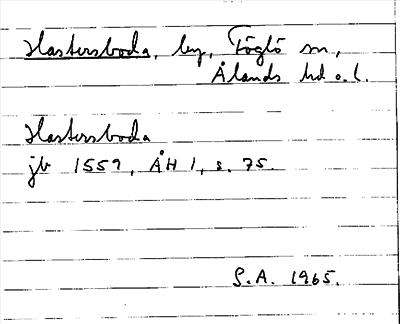 Hastersboda, by, Föglö sn,
Ålands hd o. l.
Hastersboda
jb 1559, ÅH 1, s. 75.
S.A. 1965.